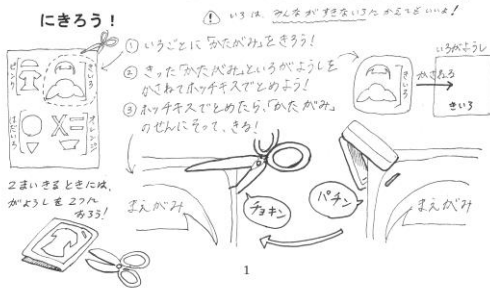 にきろう！
! いろは、みんながすきないろにかえてもいいよ！
① いろごとに「かたがみ」をきろう！
② きった「かたがみ」といろがようしを
かさねてホッチキスでとめよう！
③ ホッチキスでとめたら、「かたがみ」
のせんにそって、きる！
ピンク
きいろ
はだいろ
オレンジ
きいろ
かさねる
いろがようし
きいろ
2まいきるときには、
がようしを2つに
おろう！
まえがみ
チョキン
パチン
まえがみ
1